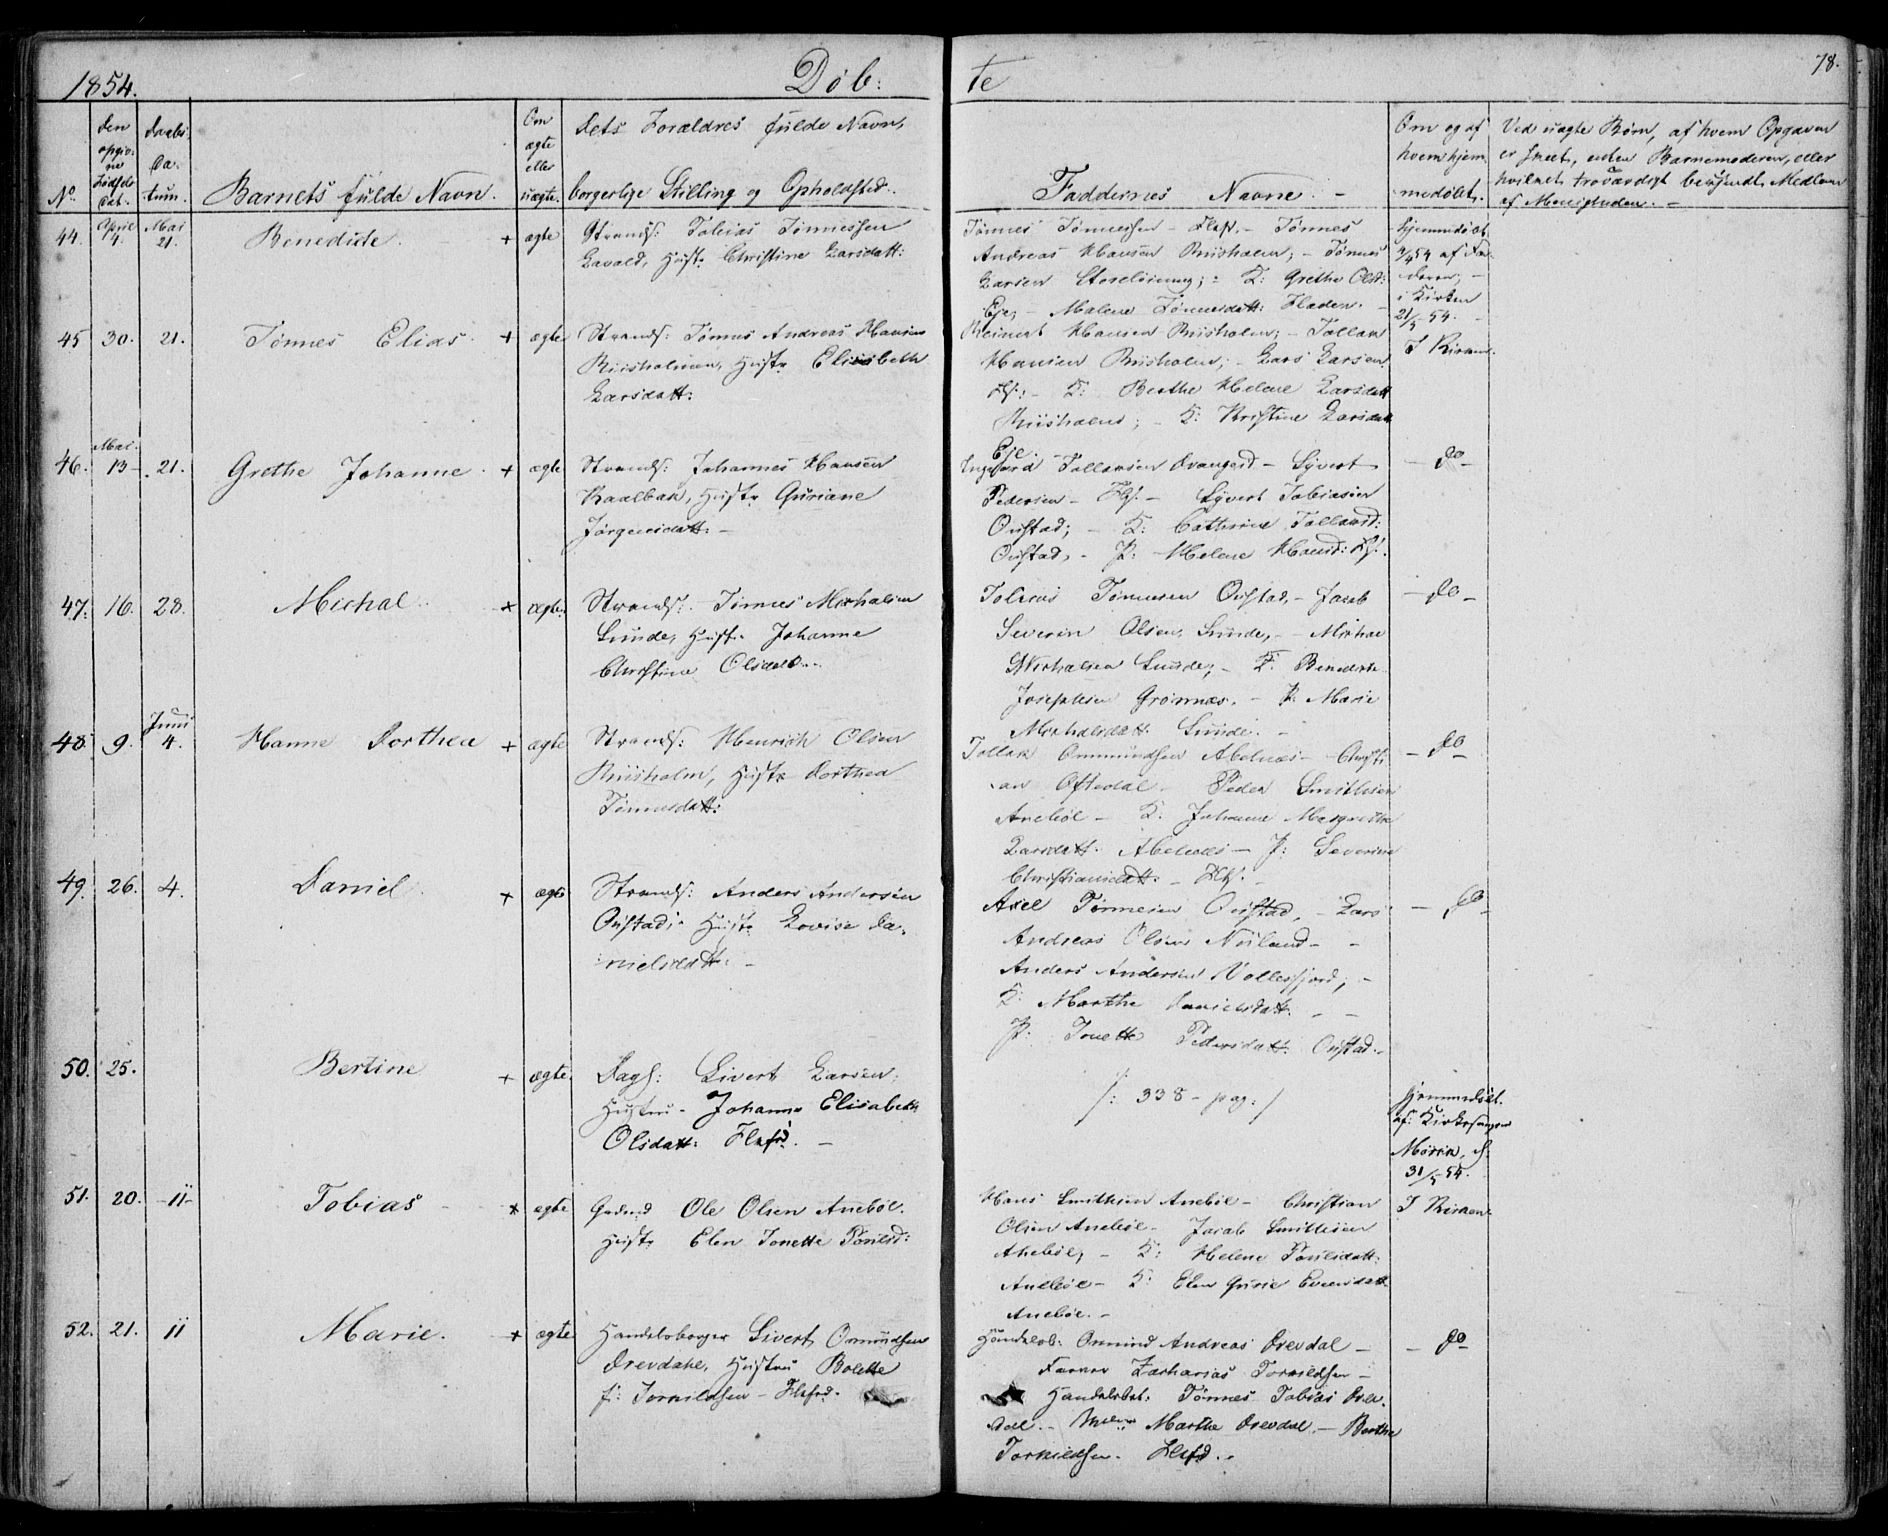 1854. Døb: te 78.
No. Den opgivne Fødselsdat. Daabs Datum. Barnets fulde Navn. Om ægte eller uægte. Dets Forældres fulde Navn, borgerlige Stilling og Opholdsted. Faddernes Navne. Om og af hvem hjemmedøbt. Ved uægte Børn, af hvem Opgaven er skeet, uden Barnemoderen, eller hvilket troværdigt bekjendt Medlem af Menigheden.
44. April 4. Mai 21. Benedicte. + ægte
Strands: Tobias Tønnessen
Lavold, Hustr Christine Larsdatt:
Tønnes Tønnessen – Flefs. – Tønnes
Andreas Hansen Riisholm; – Tønnes
Larsen ; – K: Grethe Olsd:
Eje; – Malene Tønnesdatt: Fladen. –
hjemmedøbt
4/4 54 af Fa-
deren; –
i Kirken
21/5 54.
45 30. 21. Tønnes Elias. + ægte
Strands: Tønnes Andreas Hansen
Riisholmen, Hustr Elisabeth
Larsdatt:
Reinert Hansen Riisholm; – Tollak
Hansen Riisholm; – Lars Larsen
– K: Berthe Helene Larsdatt
Riisholm; – K: Kristine Larsdatt
Eje.
I Kirken.
46. Mai 13 – 21. Grethe Johanne. + ægte
Strands: Johannes Hansen
Kaalbak, Hustr Guriane
Jørgensdatt: –
Tollaksen Drangeid – Syvert
Pedersen – – Syvert Tobiasen
Oustad; – K: Cathrine Tollaksd:
Oustad, – P: Helene Hansd:
– do –
47: 16. 28. Michal. + ægte.
Strands: Tønnes Michalsen
Lunde, Hustr. Johanne
Christine Olsdatt.
Tobias Tønnesen Oustad, – Jacob
Severin Olsen Lunde, – Michal
Michalsen Lunde; – K: Benedicte
Josephsen Grønnæs. – P: Marie
Michalsdatt. Lunde. –
– do –
48. 9. Juni 4. Hanne Dorthea + ægte
Strands: Henrich Olsen
Riisholm, Hustr Dorthea
Tønnesdatt:
Tollak Ommundsen Abelnæs – Christi
an Oftedal. Peder Smithsen
Anebøl – K: Johanne Margrethe
Larsdatt. Abelnæs – P: Severine
Christiansdatt: –
– do –
49. 26. 4. Daniel. + ægte
Strands: Anders Andersen
Oustad; Hustr Lovise Da-
nielsdatt. –
Axel Tønnesen Oustad, – Lars
Andreas Olsen Nuland –
Anders Andersen Vollesfjord; –
K: Marthe Danielsdatt. –
P: Jonette Pedersdatt: Oustad. –
– do –
50. 25. Bertine + ægte.
Dags: Sivert Larsen,
Hustru – Johanne Elisabeth
Olsdatt: Flefrd. –
/: 338 – pag: /
hjemmedøbt
af: Kirkesanger
31/5 54.
51. 20. – 11 – Tobias + ægte
Ole Olsen Anebøl.
Hustr Elen Jonette
Hans Smithsen Anebøl – Christian
Olsen Anebøl – Jacob Smithsen
Anebøl, – K: Helene
Anebøl – K: Elen Gurie Evensdatt
Anebøl. –
I Kirken
52. 21. 11 Marie. + ægte
Handelsborger Sivert Omundsen
Drevdahl, Hustru Bolette
f: Torkildsen – Flefrd.
Handelsb: Omund Andreas Drevdal –
Zacharias Torkildsen –
Handelsbet. Tønnes Tobias Drev-
dal. – Marthe Drevdal. – Berthe
Torkildsen. Flefrd.
– do